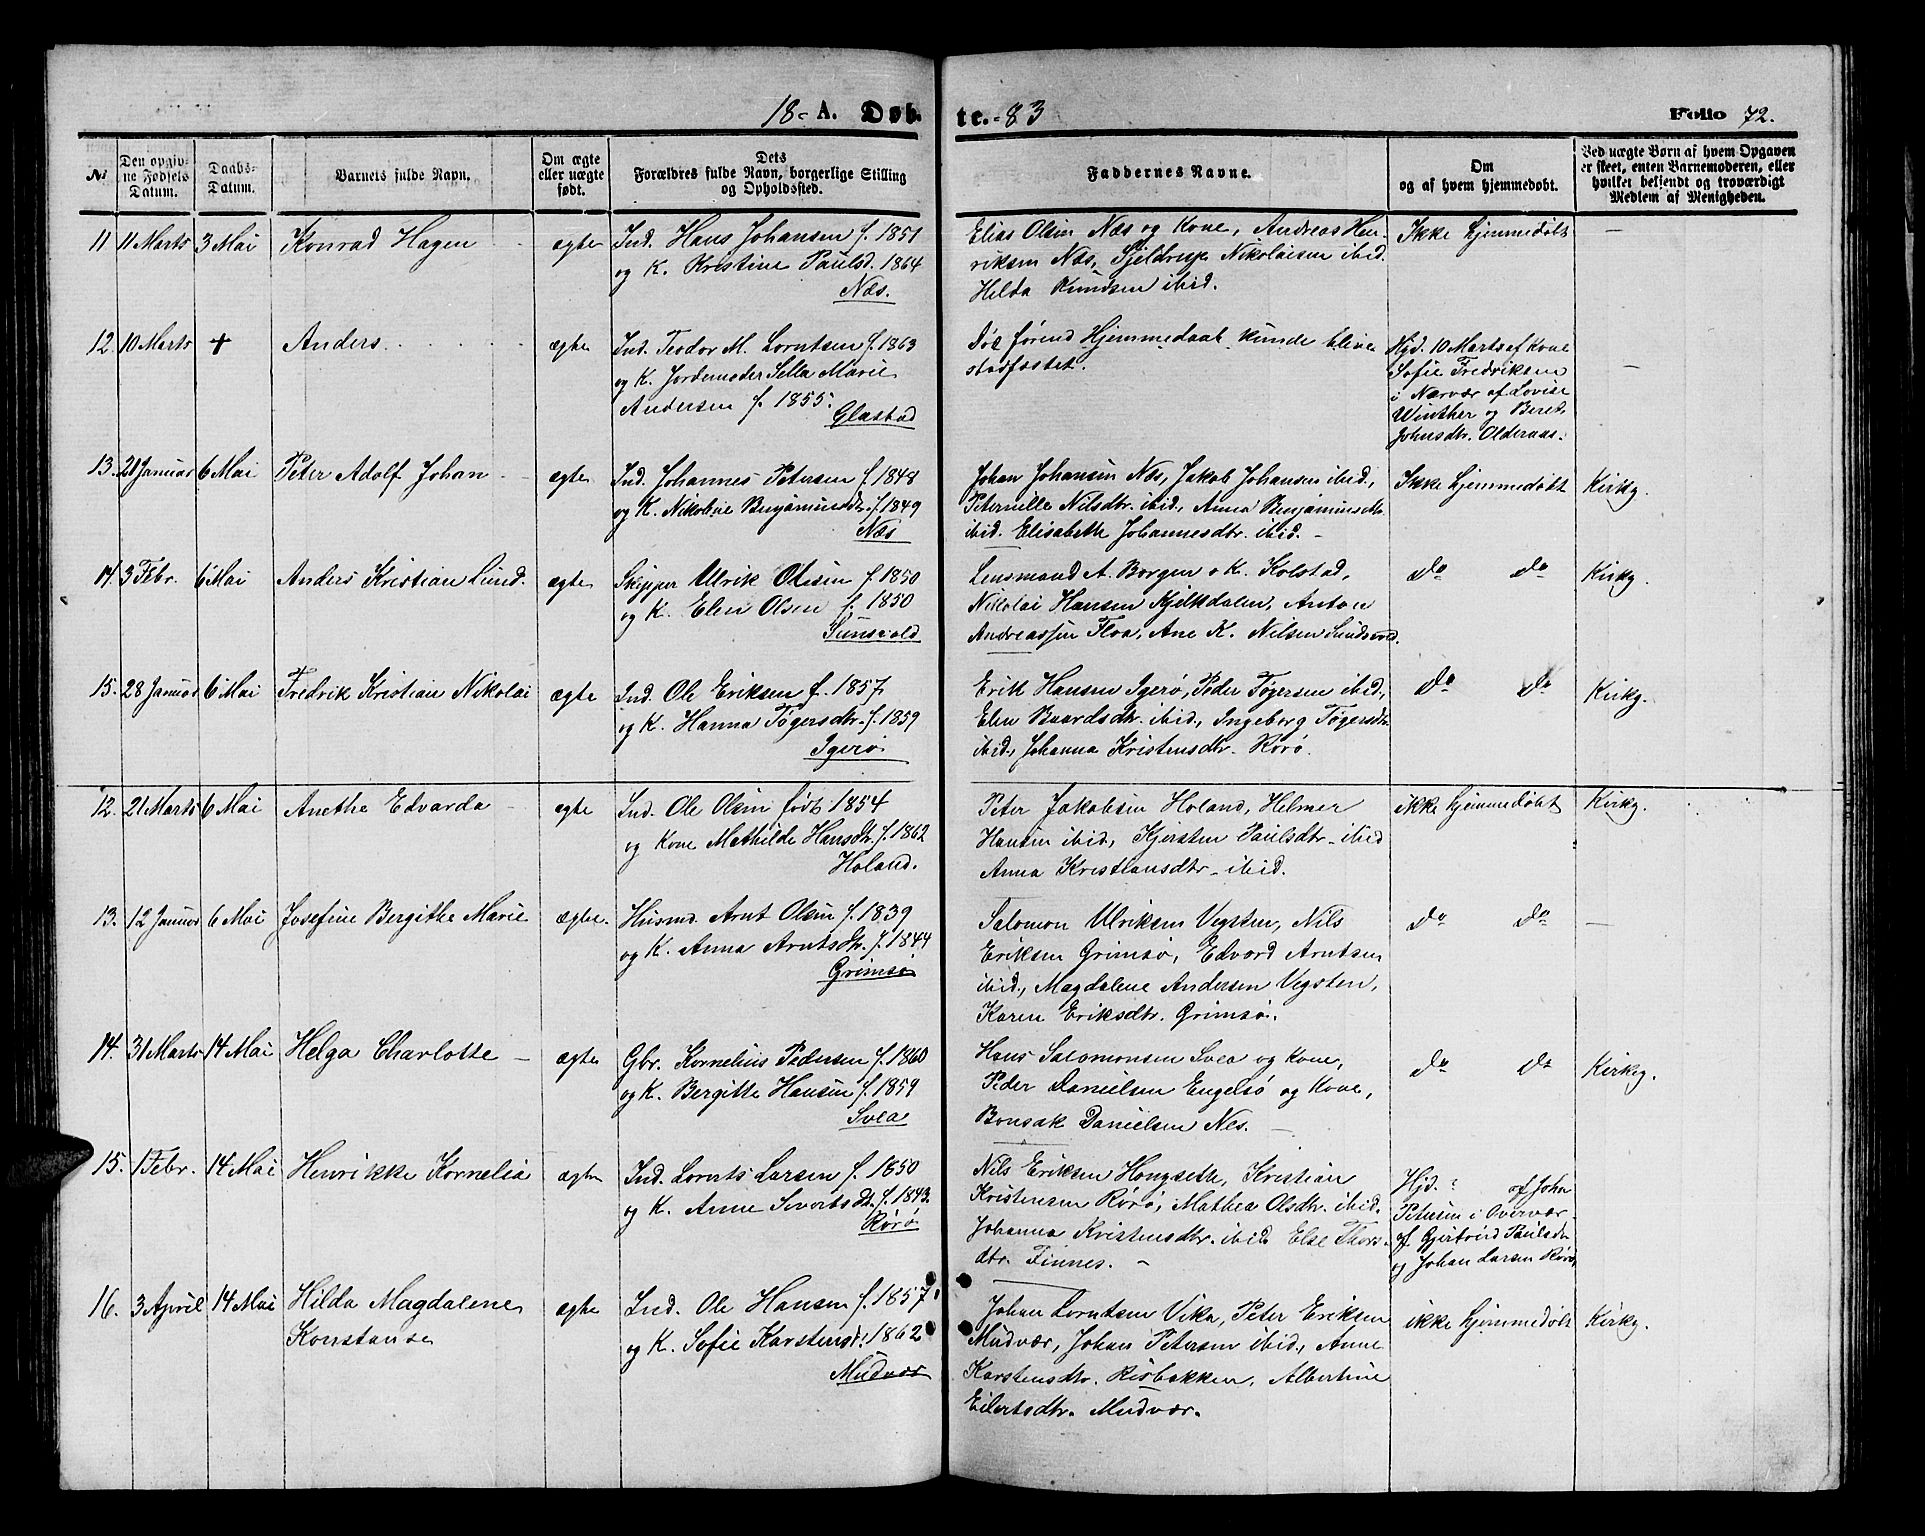 18- A. Døb- te. -83 Folio 72.
No
Den opgiv-
ne Fødsels
Datum.
Daabs-
Datum.
Barnets fulde Navn.
Om ægte
eller uægte
født.
Dets
Forældres fulde Navn, borgerlige Stilling
og Opholdssted.
Faddernes Navne.
Om
og af hvem hjemmedøbt.
Ved uægte Børn af hvem Opgaven
er skeet, enten Barnemoderen, eller
hvilket bekjendt og troværdigt
Medlem af Menigheden.
11 11 Marts 3 Mai Konrad Hagen - ægte
Ind. Hans Johansen f. 1851
og K. Kristine Paulsd. 1864
Næs.
Elias Olsen Næs og Kone, Andreas Hen-
riksen Næs, Sjeldrup Nikolaisen ibid.
Hilda Knudsen ibid.
Ikke hjemmedøbt —
12. 10 Marts + Anders ægte
Ind. Teodor M. Lorntsen f. 1863
og K. Jordemoder Sella Marie
Andersen f. 1855.
Glastad
Død førend Hjemmedaab kunde blive
stadfæstet.
Hjd. 10 Marts af Kone
Sofie Fredriksen
i Nærvær af Lovise
Winther og Beret
Johnsdtr. Olderaas. —
13. 21 Januar 6 Mai Peter Adolf Johan - ægte
Ind. Johannes Petersen f. 1848
og K. Nikoline Benjaminsdtr. f. 1849
Næs
Johan Johansen Næs, Jakob Johansen ibid,
Peternille Nilsdtr. ibid, Anna Benjaminsdtr.
ibid. Elisabeth Johannesdtr. ibid. -
Ikke hjemmedøbt Kirkg.
14. 3 Febr. 6 Mai Anders Kristian Lund. ægte
Skipper Ulrik Olsen f. 1850
og K. Elen Olsen f. 1850
Sundsvold
Lensmand A. Borgen o K. Kolstad,
Nikolai Hansen Kjelkdalen, Anton
Andreassen Floa, Ane K. Nilsen Sundsvold.
do do Kirkg.
15. 28 Januar 6 Mai Fredrik Kristian Nikolai ægte
Ind. Ole Eriksen f. 1857
og K. Hanna Tøgersdtr. f. 1859
Igerø
Erik Hansen Igerø, Peder Tøgersen ibid,
Elen Baardsdtr. ibid, Ingeborg Tøgersdtr.
ibid, Johanna Kristensdtr. Rørø.
do do Kirkg.
12. 21 Marts 6 Mai Anethe Edvarda - ægte
Ind. Ole Olsen født 1854
og Kone Mathilde Hansdtr. f. 1862
Holand.
Peter Jakobsen Holand, Helmer
Hansen ibid, Kjersten Paulsdtr. ibid
Anna Kristiansdtr. ibid.
ikke hjemmedøbt Kirkg.
13. 12 Januar 6 Mai Josefine Bergithe Marie ægte.
Husmd. Arnt Olsen f. 1839
og K. Anna Arntsdtr. f. 1844
Grimsø
Salomon Ulriksen Vegsten, Nils
Eriksen Grimsø, Edvard Arntsen
ibid, Magdalene Andersen Vegsten,
Karen Eriksdtr. Grimsø.
do do —
14. 31 Marts 14 Mai Helga Charlotte - ægte
Gbr. Kornelius Pedersen f. 1860
og K. Bergitte Hansen f. 1859
Svea
Hans Salomonsen Svea og Kone,
Peder Danielsen Engelsø og Kone,
Bonsak Danielsen Nes. -
do do Kirkg.
15. 1 Febr. 14 Mai Henrikke Kornelia ægte
Ind. Lornts Larsen f. 1850
og K. Anne Sivertsdtr. f. 1843.
Rørø
Nils Eriksen Hongseth, Kristian
Kristensen Rørø, Mathea Olsdtr. ibid.
Johanna Kristensdtr. ibid Else Thors-
dtr. Finnes. -
Hjd. ? af John
Petersen i Overvær
af Gjertrud Paulsdtr.
og Johan Larsen Rørø,
16. 3 April 14 Mai Hilda Magdalene
Konstanse ægte
Ind. Ole Hansen f. 1857
og K. Sofie Karstensdtr. 1862
Mudvær
Johan Lorntsen Vika, Peter Eriksen
Mudvær, Johan Petersen ibid, Anne
Karstensdtr. Risbakken, Albertine
Eilertsdtr. Mudvær.
ikke hjemmedøbt Kirkg.